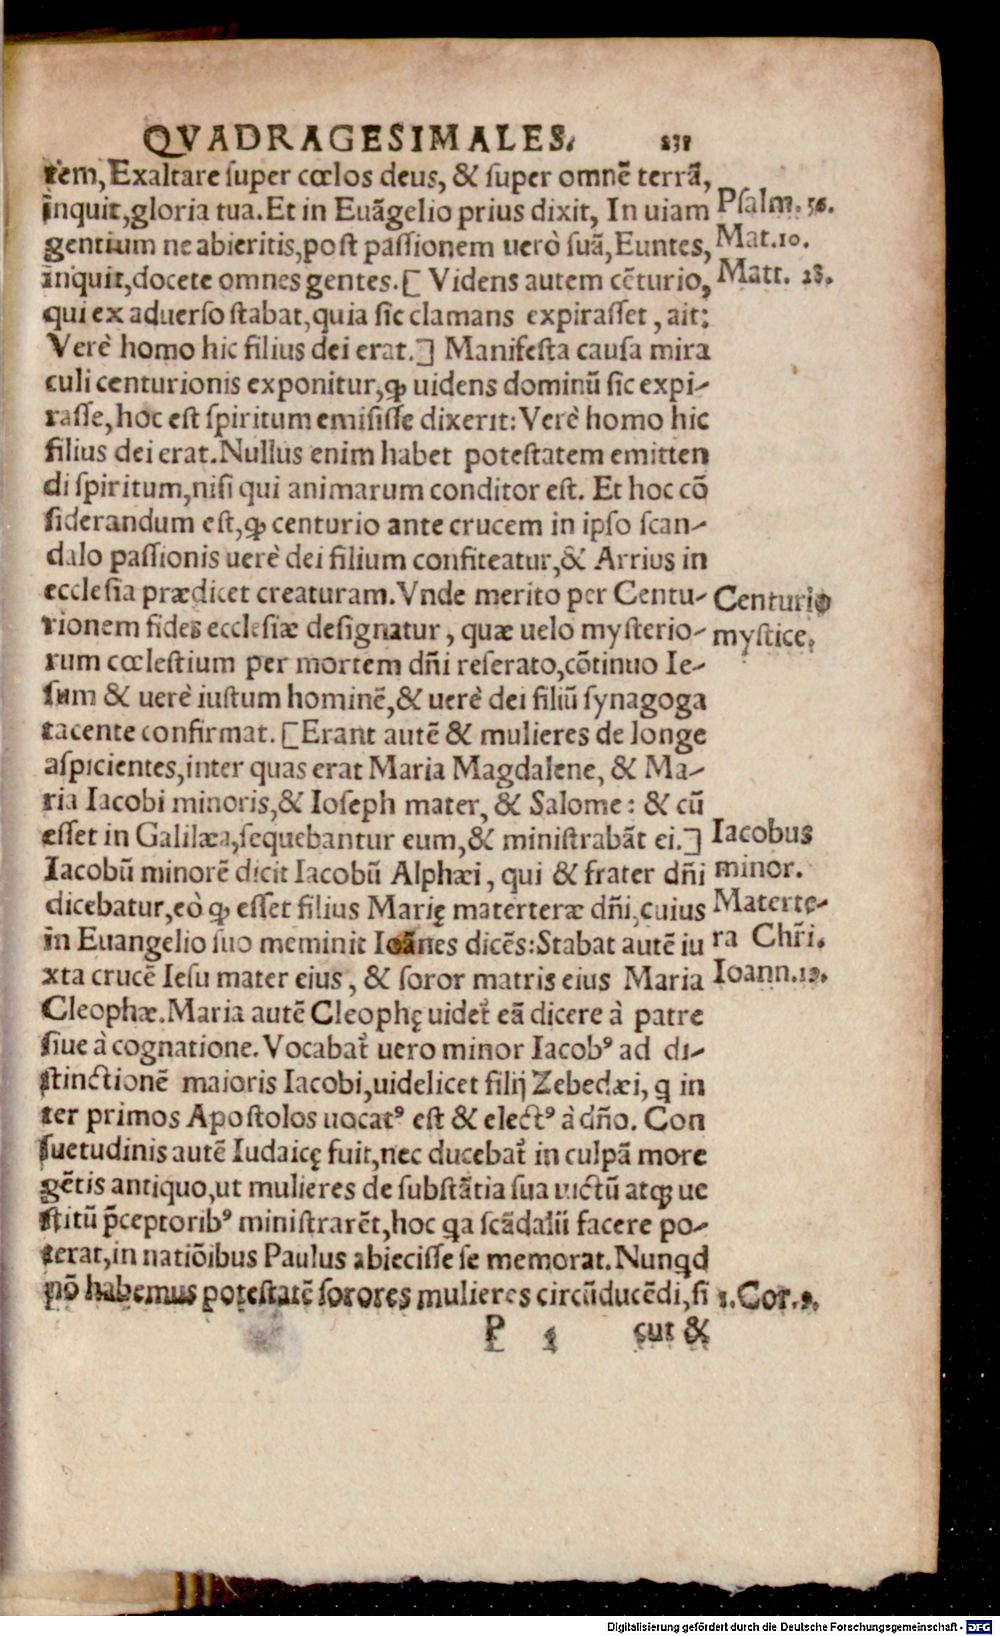 QVADRAGESIMALES. 231
rem, Exaltare super cœlos deus, & super omnẽ terrã,
inquit, gloria tua. Et in Euãgelio prius dixit, In uiam
Psalm. 56.
gentium ne abieritis, post passionem uerò suã, Euntes,
Mat. 10.
inquit, docete omnes gentes. [ Videns autem cẽturio,
Matt. 28.
qui ex aduerso stabat, quia sic clamans expirasset, ait:
Verè homo hic filius dei erat. ] Manifesta causa mira
culi centurionis exponitur, ꝙ uidens dominũ sic expi-
rasse, hoc est spiritum emisisse dixerit: Verè homo hic
filius dei erat. Nullus enim habet potestatem emitten
di spiritum, nisi qui animarum conditor est. Et hoc cõ
siderandum est, ꝙ centurio ante crucem in ipso scan-
dalo passionis uerè dei filium confiteatur, & Arrius in
ecclesia prædicet creaturam. Vnde merito per Centu-
Centurio
rionem fides ecclesiæ designatur, quæ uelo mysterio-
mystice.
rum cœlestium per mortem dñi reserato, cõtinuo Ie-
sum & uerè iustum hominẽ, & uerè dei filiũ synagoga
tacente confirmat. [ Erant autẽ & mulieres de longe
aspicientes, inter quas erat Maria Magdalene, & Ma-
ria Iacobi minoris, & Ioseph mater, & Salome: & cũ
esset in Galilæa, sequebantur eum, & ministrabãt ei. ]
Iacobus
Iacobũ minorẽ dicit Iacobũ Alphæi, qui & frater dñi
minor.
dicebatur, eò ꝙ esset filius Marię materteræ dñi, cuius
Materte-
in Euangelio suo meminit Ioãnes dicẽs: Stabat autẽ iu
ra Chr̃i.
xta crucẽ Iesu mater eius, & soror matris eius Maria
Ioann. 19.
Cleophæ. Maria autẽ Cleophę uidet᷑ eã dicere à patre
siue à cognatione. Vocabat᷑ uero minor Iacobꝰ ad di-
stinctionẽ maioris Iacobi, uidelicet filij Zebedæi, ꝗ in
ter primos Apostolos uocatꝰ est & electꝰ à dño. Con
suetudinis autẽ Iudaicę fuit, nec ducebat᷑ in culpã more
gẽtis antiquo, ut mulieres de substãtia sua uictũ atqꝫ ue
stitũ p̃ceptoribꝰ ministrarẽt, hoc ꝗa scãdalũ facere po-
terat, in natiõibus Paulus abiecisse se memorat. Nunꝗd
nõ habemus potestatẽ sorores mulieres circũducẽdi, si
1. Cor. 9.
P 4 cut &
Digitalisierung gefördert durch die Deutsche Forschungsgemeinschaft - DFG